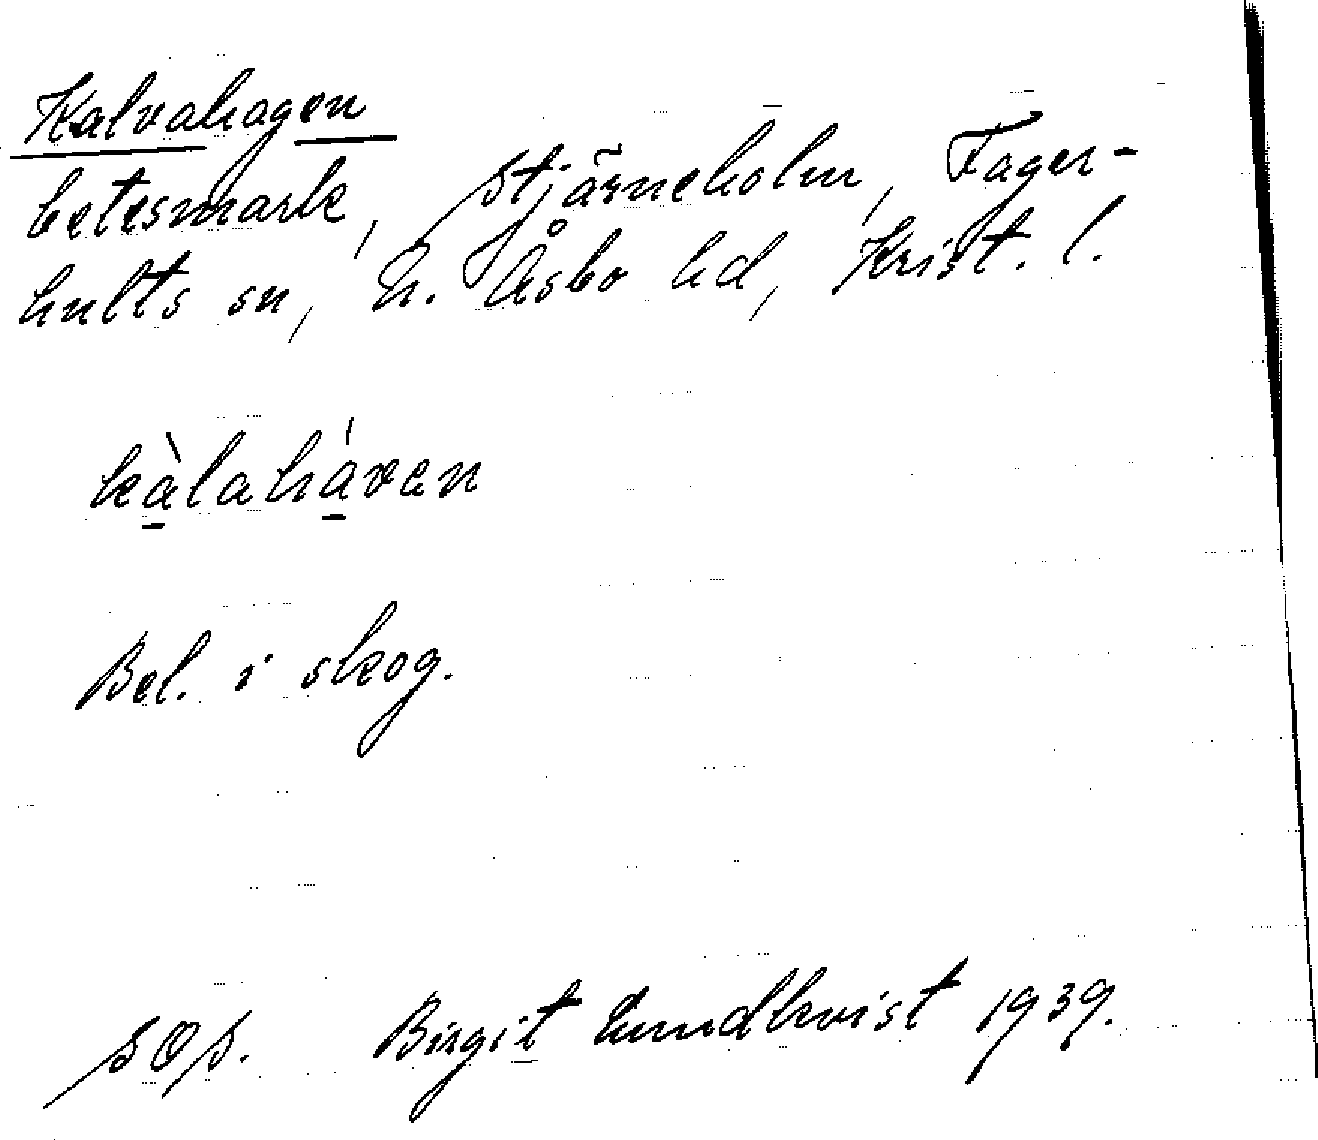 Kalvahagen
betesmark, Stjärneholm, Fager-
hults sn, N. Åsbo hd, Krist. l.
kàlaháven
Bel. i skog.
SOS. Birgit Lundkvist 1939.